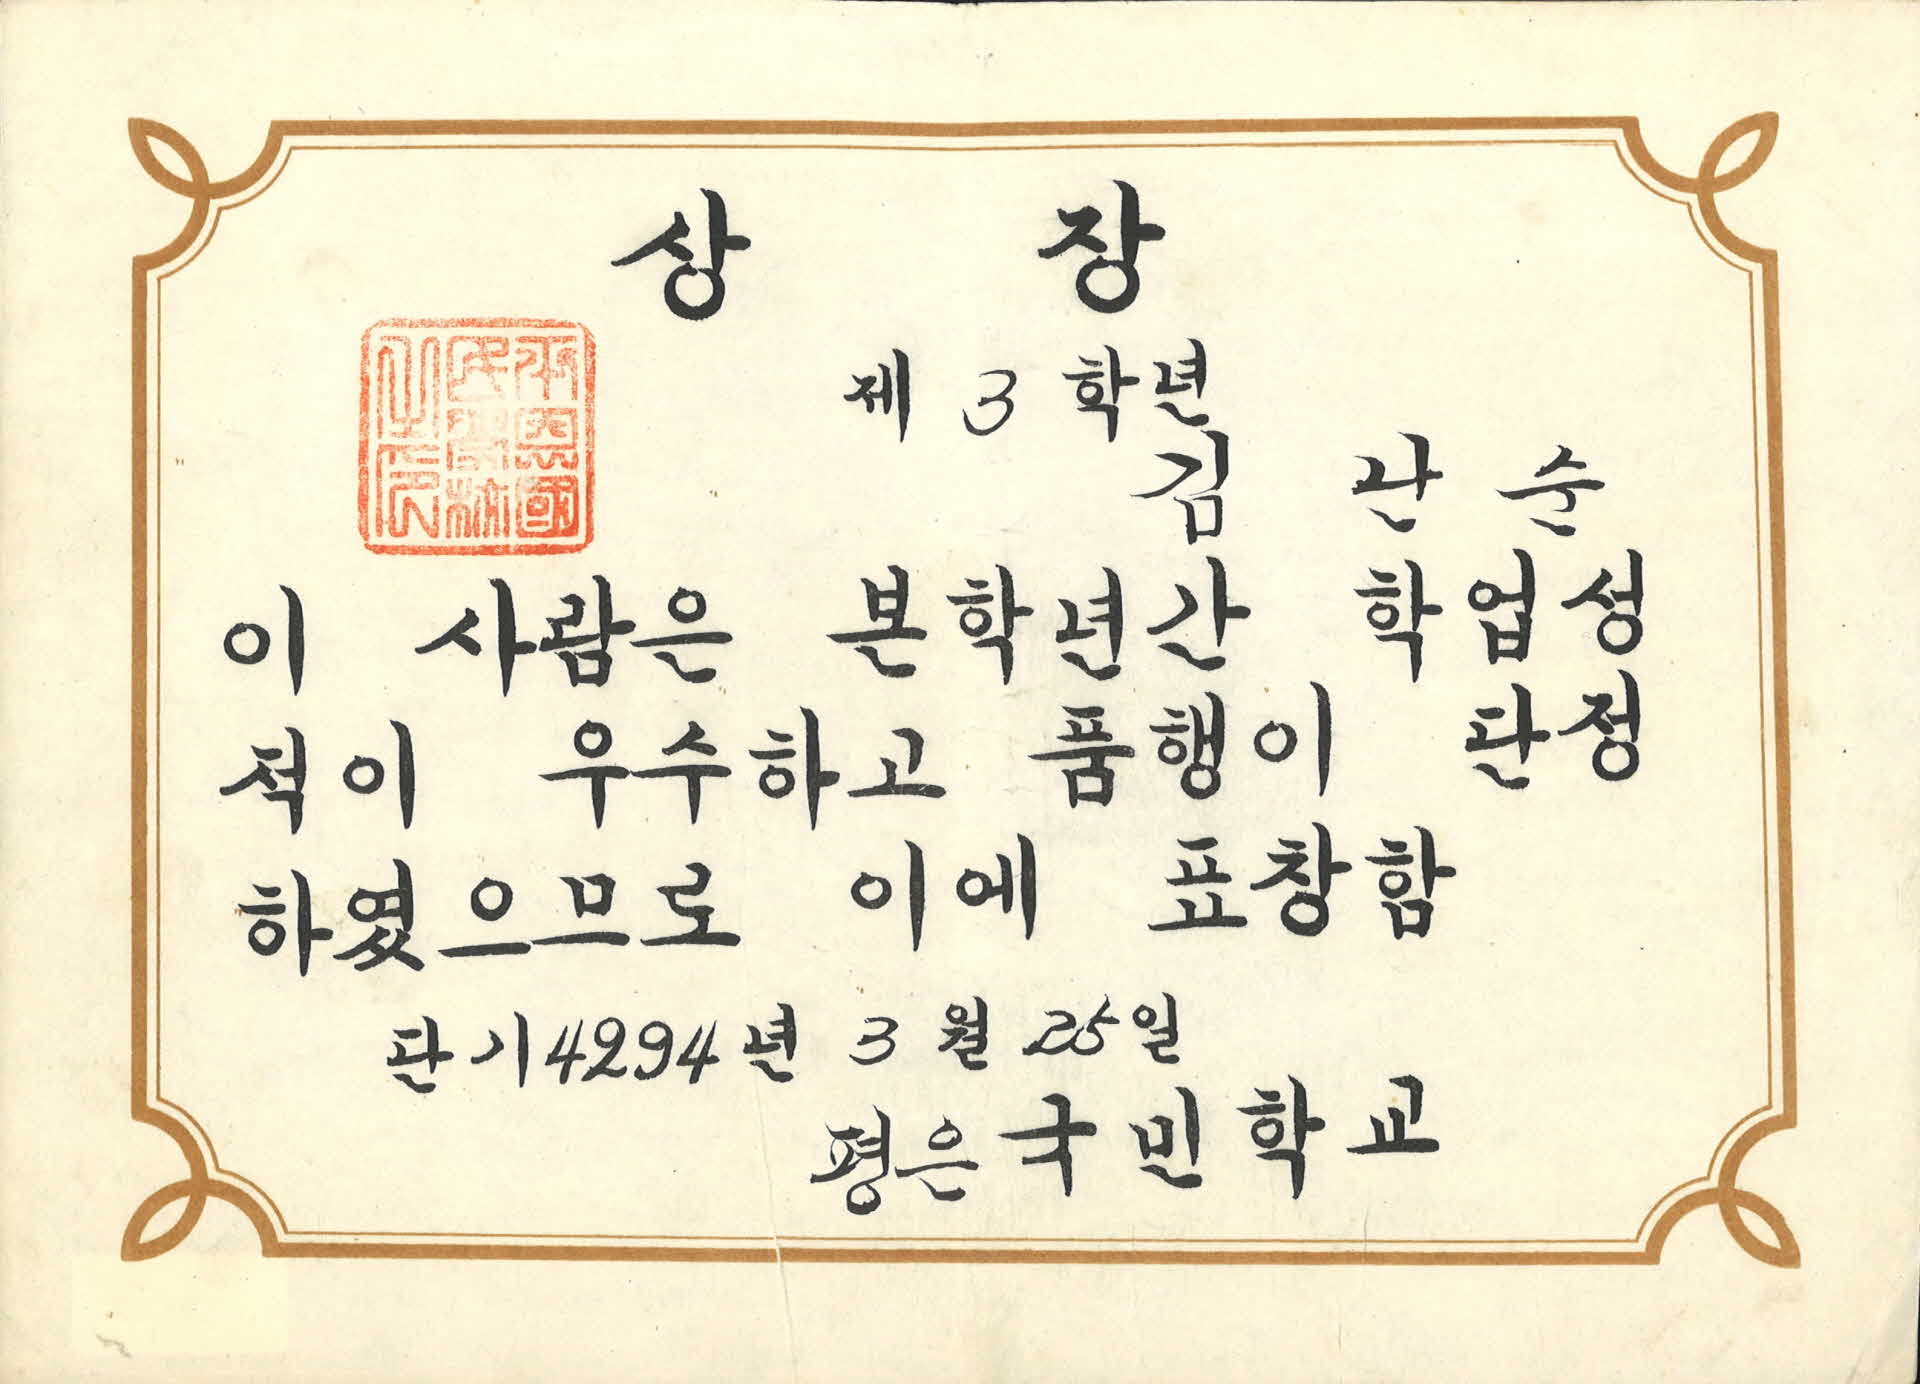 상 장
제 3 학년
김 관 순
이 사람은 본학년간 학업성
적이 우수하고 품행이 단정
하였으므로 이에 표창함
단기 4294년 3월 25일
평은국민학교
平恩國
民學校
之印